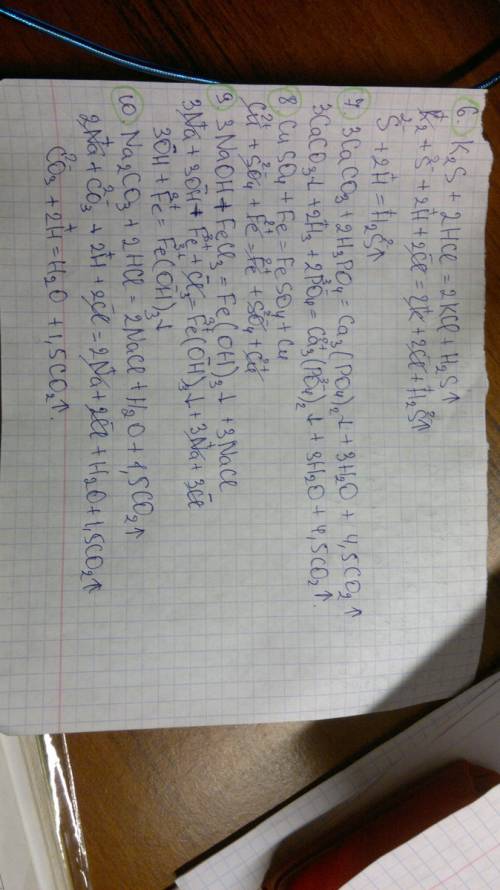 6. K₂S + 2HCl = 2KCl + H₂S↑
K⁺₂ + S²⁻ + 2H⁺ + 2Cl⁻ = 2K⁺ + 2Cl⁻ + H₂S↑
S²⁻ + 2H⁺ = H₂S↑
7. 3CaCO₃ + 2H₃PO₄ = Ca₃(PO₄)₂↓ + 3H₂O + 4,5CO₂↑
3CaCO₃↓ + 2H⁺₃ + 2PO₄³⁻ = Ca₃²⁺(PO₄³⁻)₂↓ + 3H₂O + 4,5CO₂↑.
8 CuSO₄ + Fe = FeSO₄ + Cu
Cu²⁺ + SO₄²⁻ + Fe²⁺ = Fe²⁺ + SO₄²⁻ + Cu²⁺
9. 3NaOH + FeCl₃ = Fe(OH)₃↓ + 3NaCl
3Na⁺ + 3OH⁻ + Fe³⁺ + Cl⁻₃ = Fe³⁺(OH⁻)₃↓ + 3Na⁺ + 3Cl⁻
3OH⁻ + Fe³⁺ = Fe(OH)₃↓
10. Na₂CO₃ + 2HCl = 2NaCl + H₂O + 1,5CO₂↑
2Na⁺ + CO₃²⁻ + 2H⁺ + 2Cl⁻ = 2Na⁺ + 2Cl⁻ + H₂O + 1,5CO₂↑
CO₃²⁻ + 2H⁺ = H₂O + 1,5CO₂↑